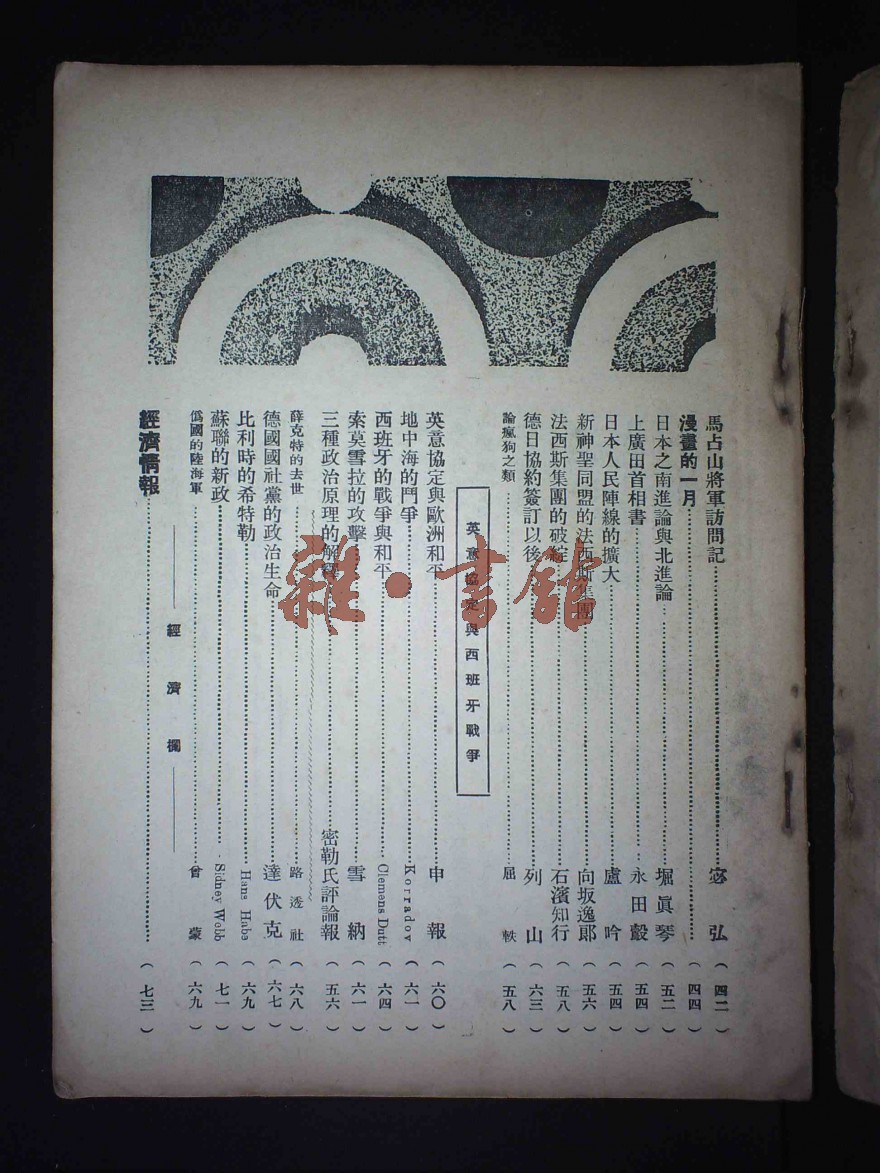 馬占山將軍訪問記 宓弘 (四二)
漫畫的一月 (四四)
日本之南進論與北進論 堀眞琴 (五二)
上廣田首相書 永田瑴 (五四)
日本人民陣線的擴大 盧吟 (五四)
新神聖同盟的法西斯集團 向坂逸郎 (五六)
法西斯集團的破綻 石濱知行 (五八)
德日協約簽訂以後 列山 (六三)
論瘋狗之類 屈軼 (五八)
英意協定與西班牙戰爭
英意協定與歐洲和平 申報 (六〇)
地中海的鬥爭 Korradov (六一)
西班牙的戰爭與和平 Clemens Dutt (六四)
索莫雪拉的攻擊 雪納 (六一)
三種政治原理的解釋 密勒氏評論報 (五六)
薛克特的去世 路透社 (六八)
德國國社黨的政治生命 達伏克 (六七)
比利時的希特勒 Hans Habe (六九)
蘇聯的新政 Sidney Webb (七一)
僞國的陸海軍 曾蒙 (六九)
經濟欄
經濟情報 (七三)
雜·書館